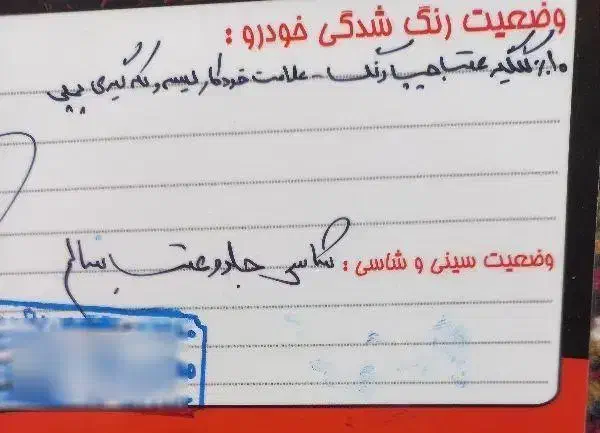 وضعیت رنگ شدگی خودرو :
۱۰٪ گلگیر عقب چپ رنگ - علامت خودکار لیسه و لکه گیری
وضعیت سینی و شاسی : شاسی جلو و عقب سالم